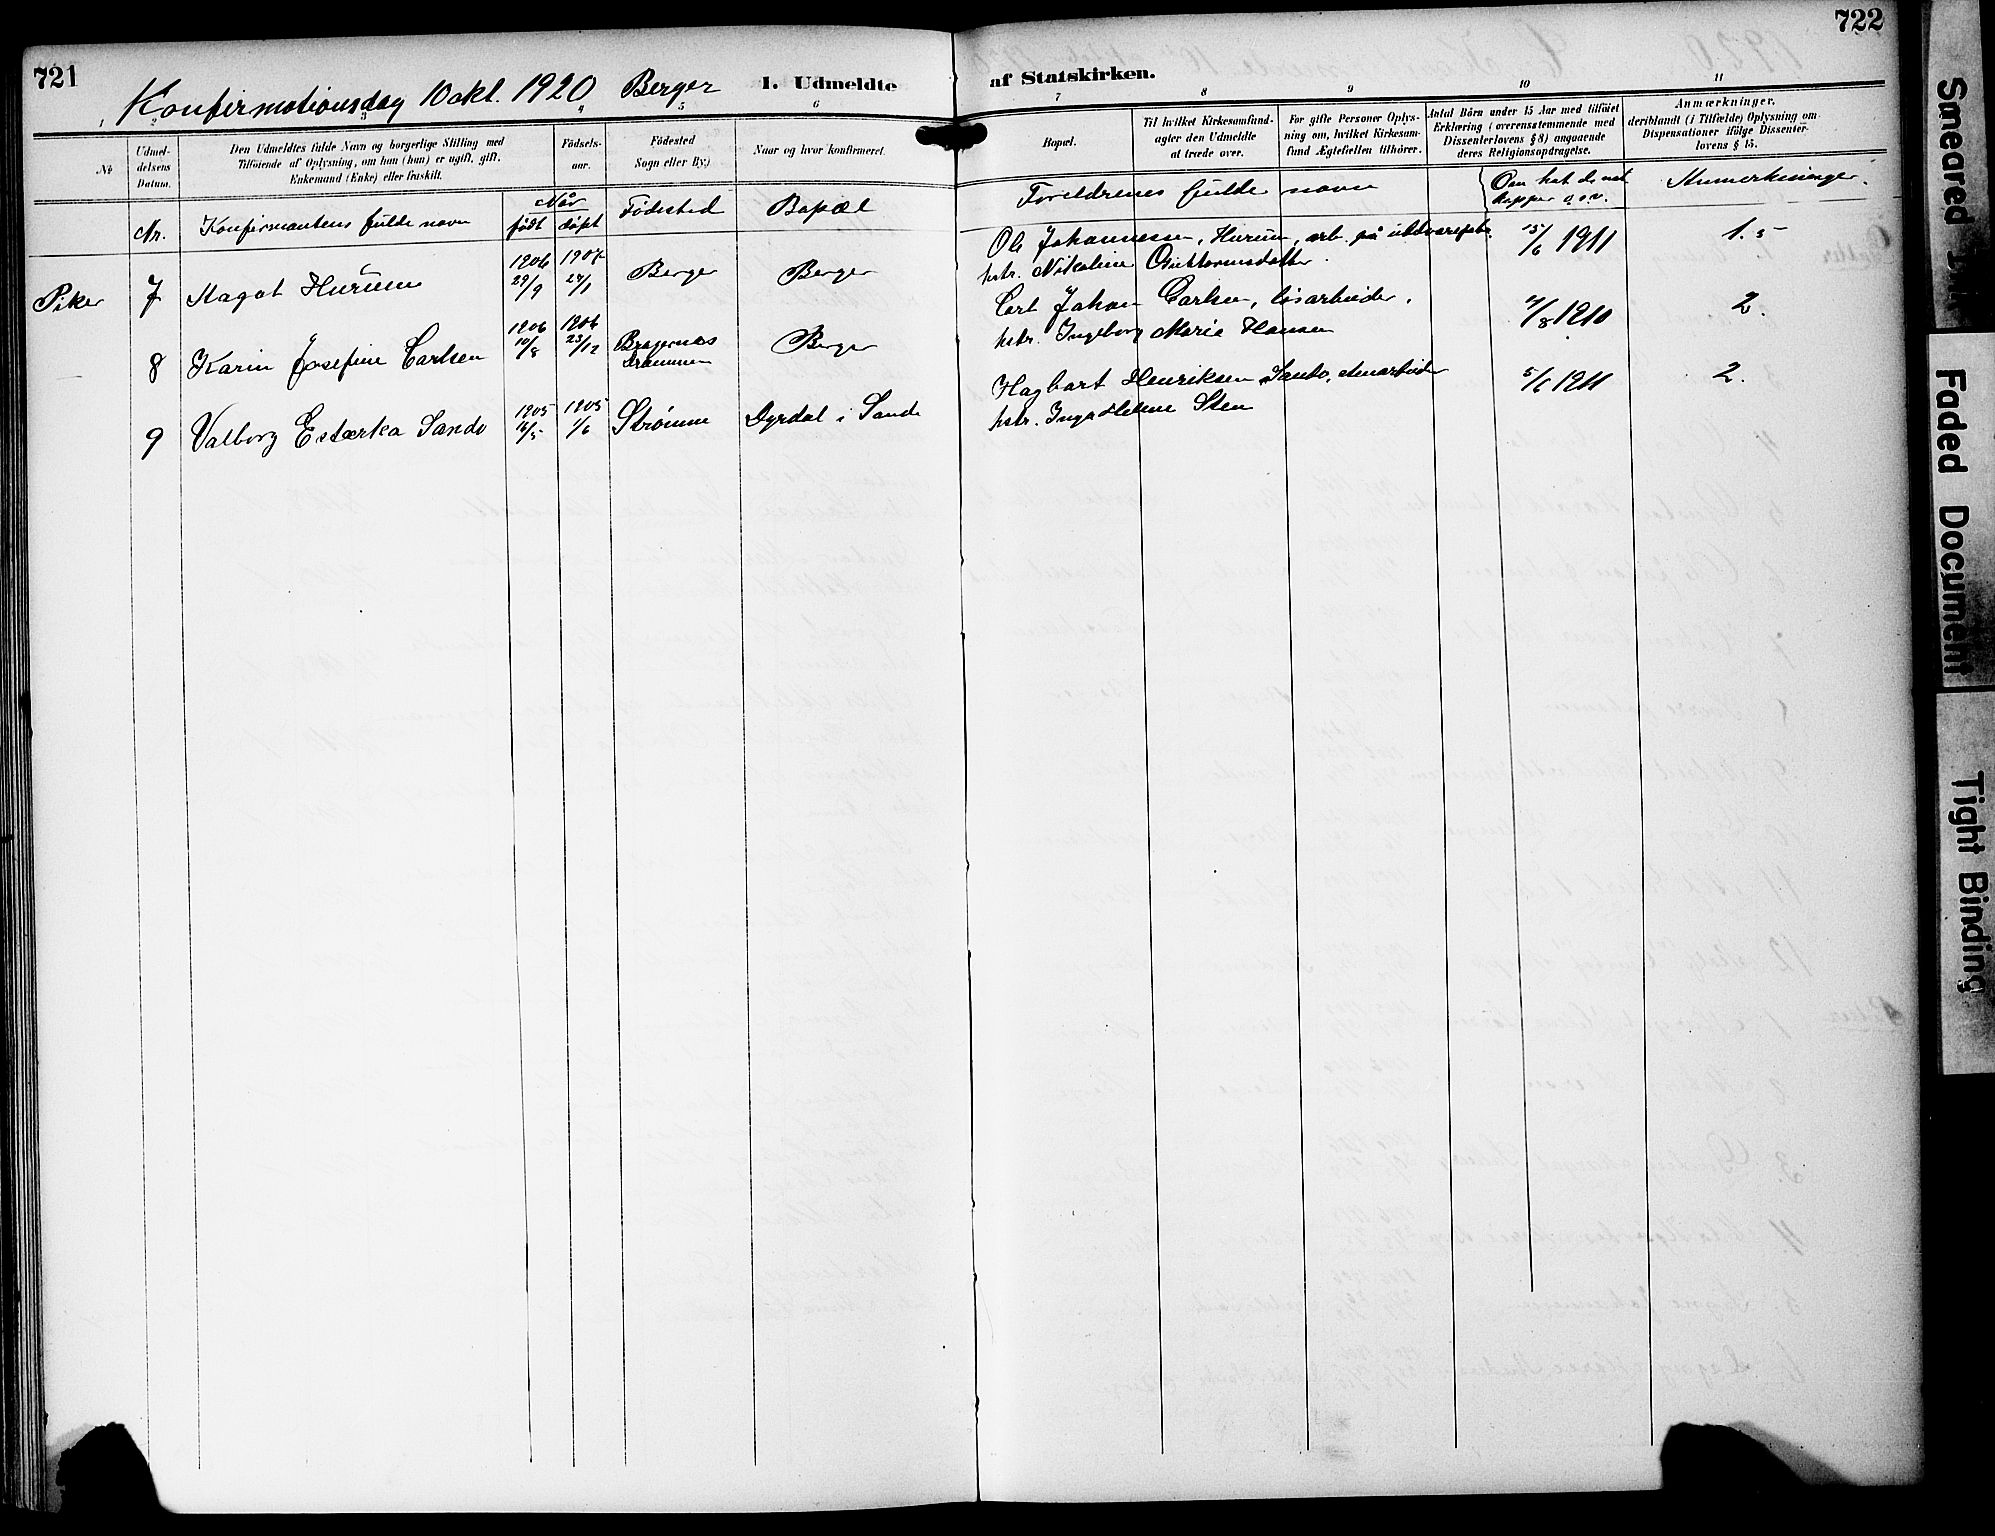 721
722
Konfirmationsdag 10 okt. 1920 Berger
1. Udmeldte af Statskirken.
1 2 3 4 5 6 7 8 9 10 11
No
Udmel-
delsens
Datum.
Den Udmeldtes fulde Navn og borgerlige Stilling med
Tilføiende af Oplysning, om han (hun) er ugift, gift,
Enkemand (Enke) eller fraskilt.
Fødsels-
aar.
Fødested
Sogn eller By.)
Naar og hvor konfirmeret.
Bopæl.
Til hvilket Kirkesamfund-
agter den Udmeldte
at træde over.
For gifte Personer Oplys-
ning om, hvilket Kirkesam-
fund Ægtefællen tilhører.
Antal Børn under 15 Aar med tilføiet
Erklæring (overensstemmende med
Dissenterlovens § 8) angaaende
deres Religionsopdragelse.
Anmærkninger,
deriblandt (i Tilfælde) Oplysning om
Dispensationer ifølge Dissenter-
lovens § 15.
Nr.
Konfirmantens fulde navn
Når
født døpt
Fødested
Bopæl
Foreldrenes fulde navn
Om hat de nat.
kopper o.s.v.
Anmerkninger.
Piker
7 Aagot Hurum
1906 29/9
1907 27/1
Berger
Berger
Ole Johannessen, Hurum, arb. på
hstr. Nikoline Guttormsdatter.
15/6 1911
1.5
8 Karin Josefine Carlsen
1906 10/8
1906 23/12
Bragernæs
Drammen
Berger
Carl Johan Carlsen, løsarbeider,
hstr. Ingeborg Marie Hansen
/8 1910
2.
9 Valborg Estærka Sando
1905 16/5
1905 /6
Strømm
Dyrdal i Sande
Hagbart Henriksen Sando,
hstr. Inga Helene Sten
1911
2.
Smeared Ink
Faded Document
Tight Binding